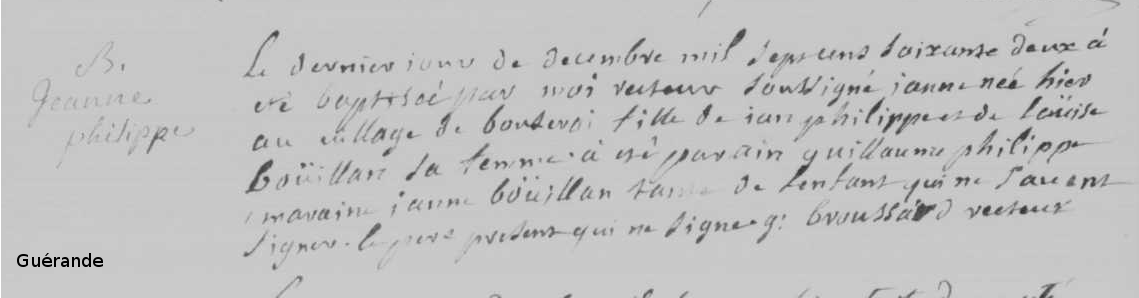 B.
Jeanne
philippe
Le dernier jour de decembre mil sept cens soixante deux a
eté baptisée par moi recteur soussigné janne née hier
au village de fille de jan philippe et de Loüise
boüillan sa femme. a eté parain guillaume philippe
maraine janne boüillan tante de l'enfant qui ne savent
signer. le pere present qui ne signe g: broussard recteur
Guérande